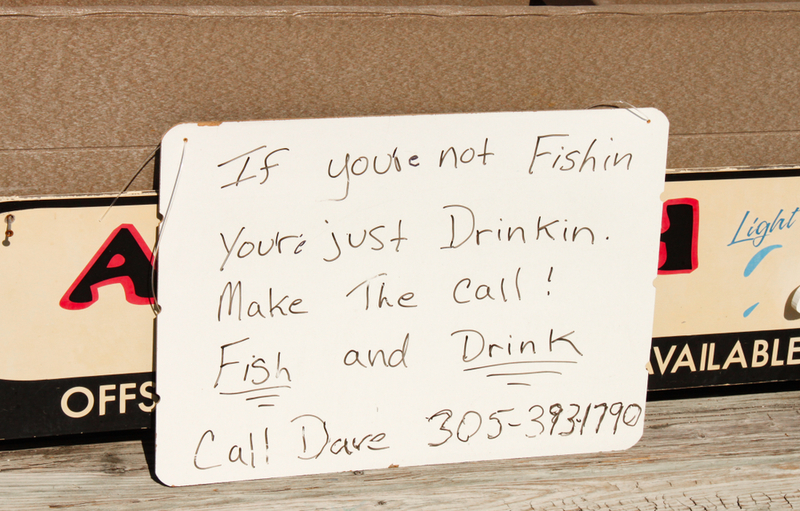 If you're not Fishin
You're just Drinkin.
Make The call!
Fish and Drink
Call Dave 305-393-1790
A
H
Light
OFFS
AVAILABLE